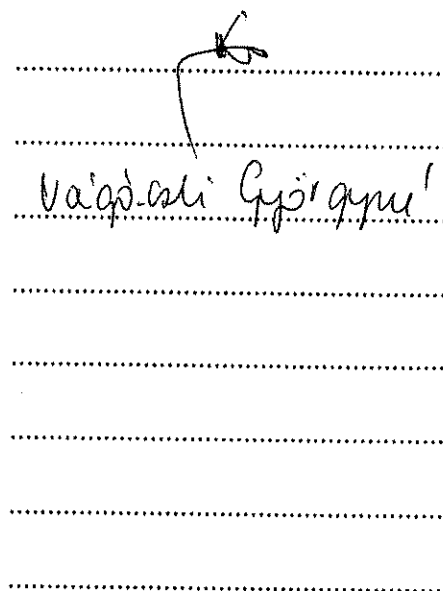 Vágó-csli Györgyné